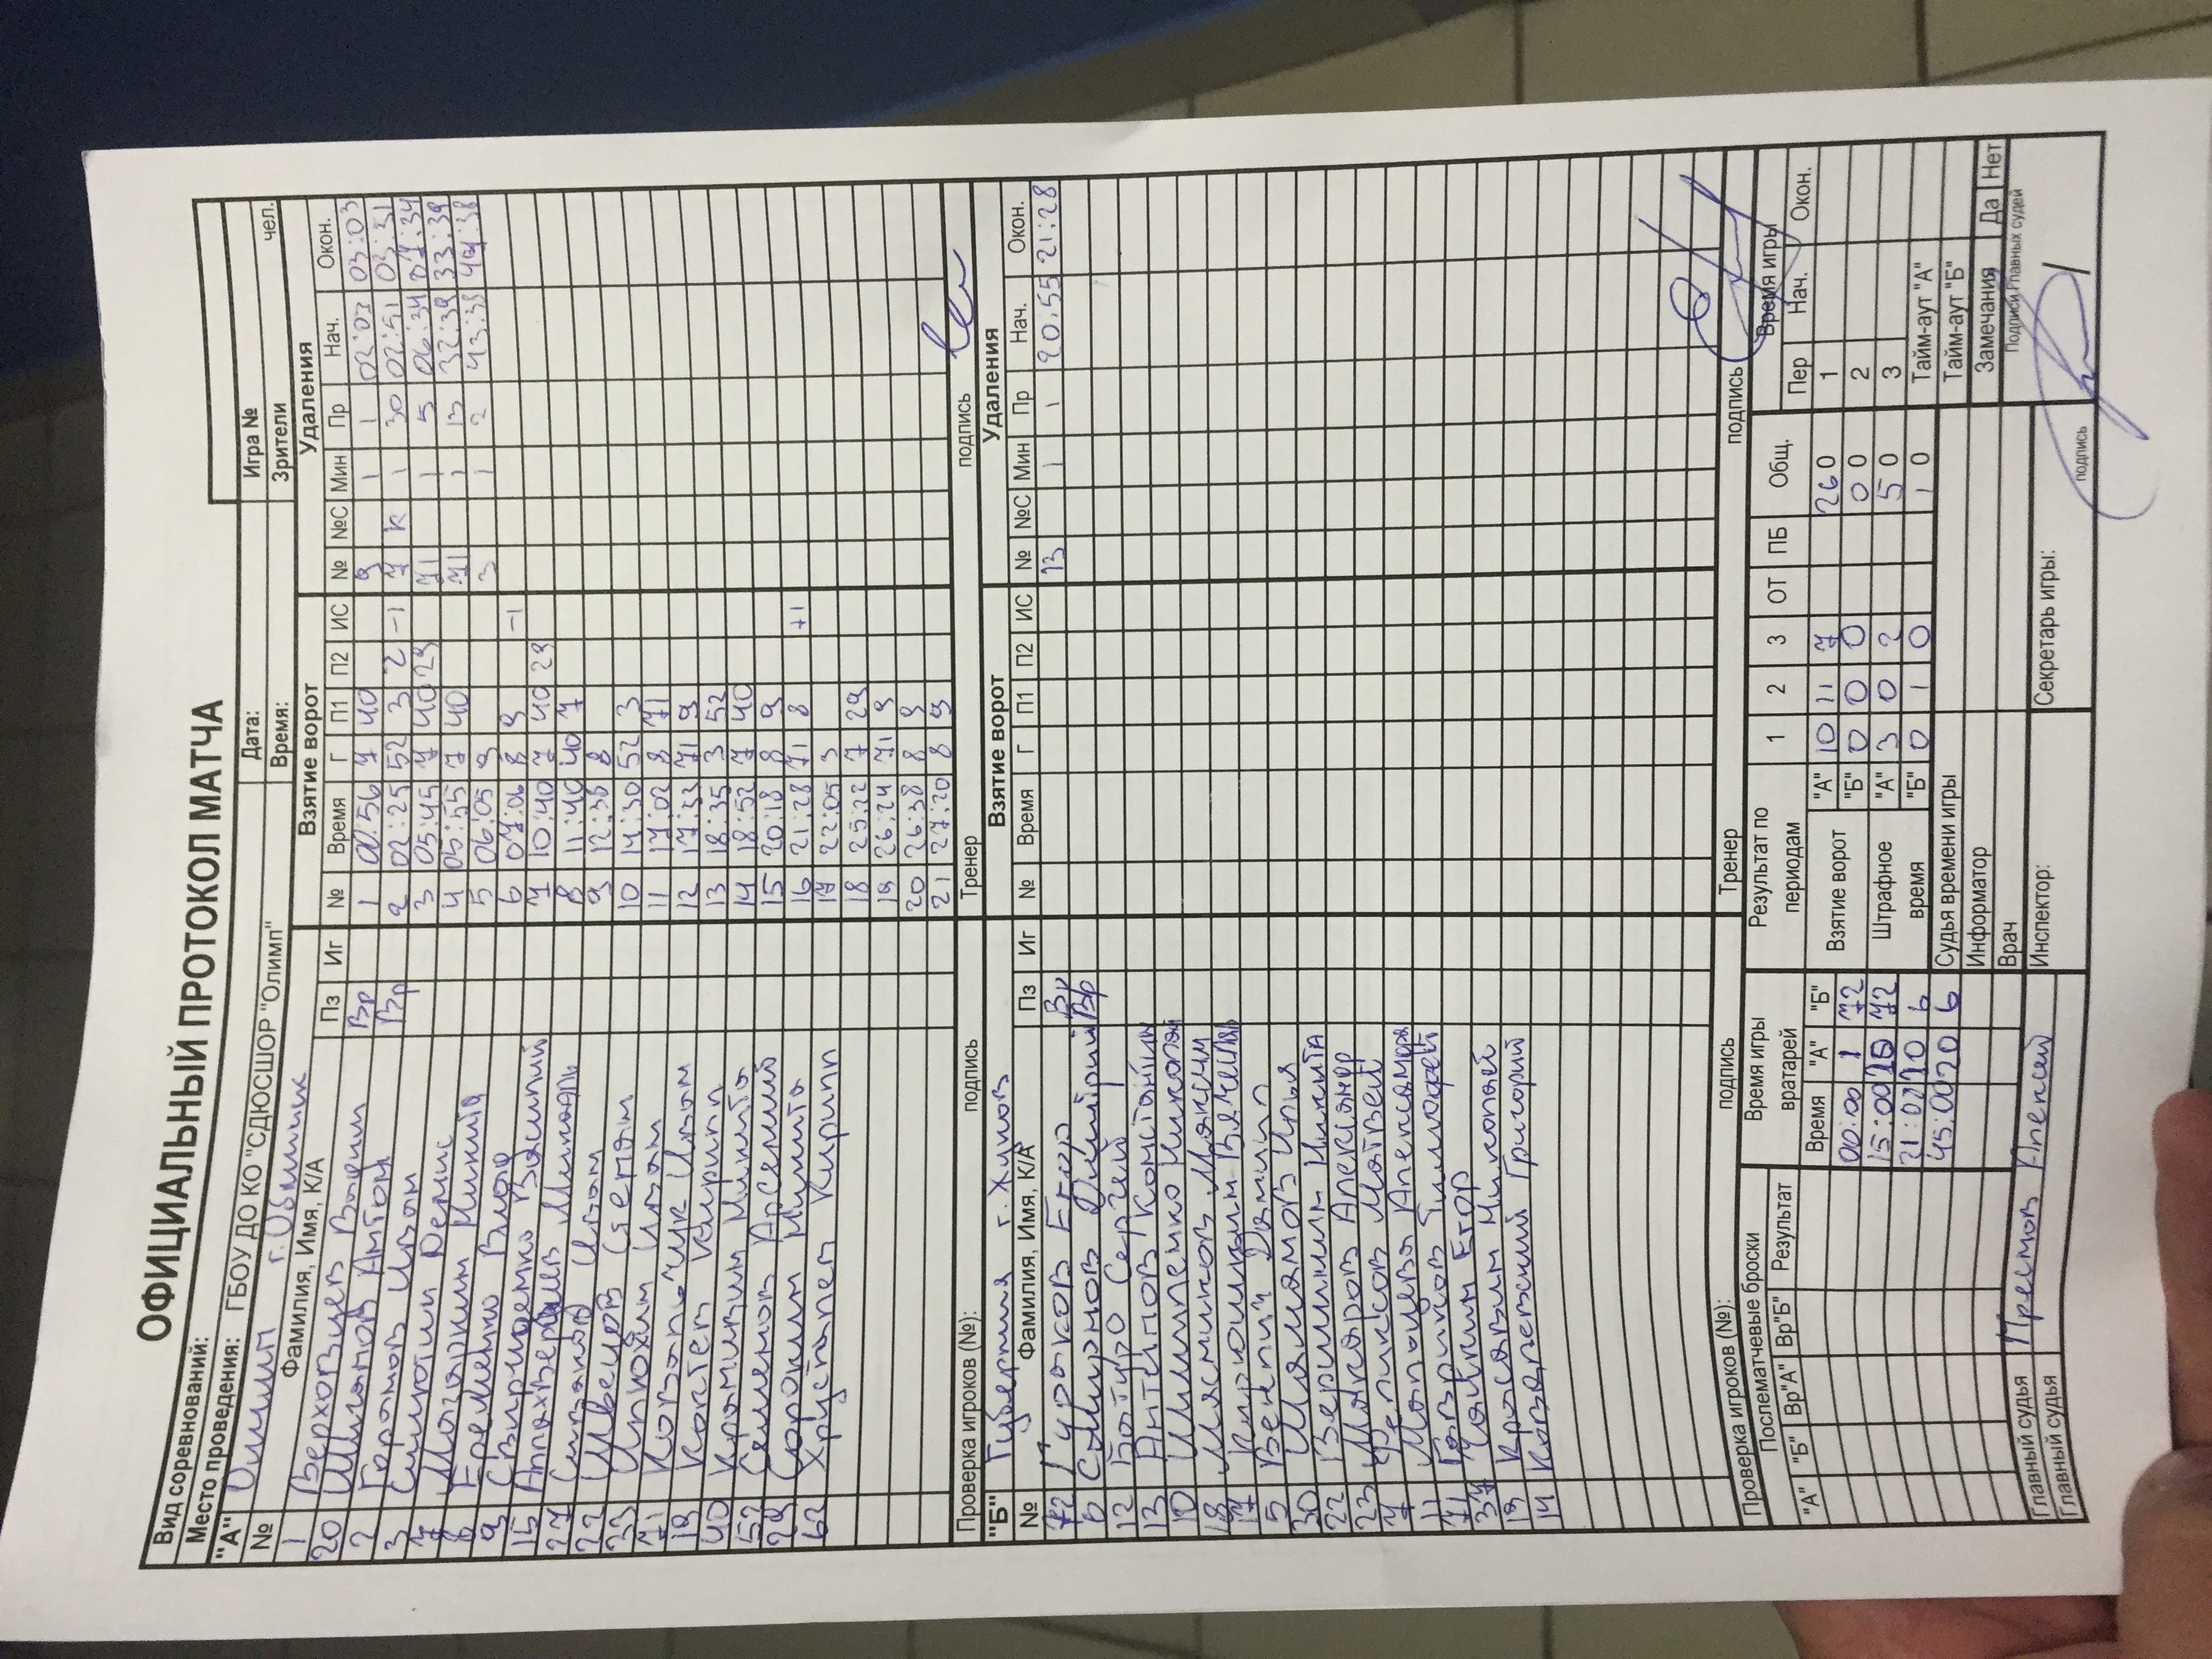 ОФИЦИАЛЬНЫЙ ПРОТОКОЛ МАТЧА
Вид соревнований:
Место проведения: ГБОУ ДО КО "СДЮСШОР "Олимп" Дата: Игра №
Время: Зрители чел.
"А" Олимп г. Обнинск Взятие ворот Удаления
№ Фамилия, Имя, К/А Пз Иг № Время Г П1 П2 ИС № №С Мин Пр Нач. Окон.
1 Верховцев Вадим Вр 1 00:56 7 40 9 1 1 02:03 03:03
20 Шипанов Антон Вр 2 02:25 52 3 2 -1 7 К 1 30 02:51 03:51
2 Громов Иван 3 05:45 7 40 29 71 1 5 06:34 07:34
3 Сиротин Денис 4 05:55 7 40 71 1 13 32:39 33:39
7 Магаркин Никита 5 06:05 9 3 1 2 43:38 44:38
8 Еременко Влад 6 07:06 8 9 -1
9 Свириденко Василий 7 10:40 7 40 29
15 Аллахвердиев Микаэль 8 11:40 40 7
27 Иван 9 12:36 8
22 Швецов Степан 10 14:30 52 3
33 Иван 11 17:02 8 71
71 Ковальчик Иван 12 17:33 71 9
19 Коптев Кирилл 13 18:35 3 52
40 Кромицин Никита 14 18:52 7 40
52 Семенов Арсений 15 20:18 8 9
29 Сорокин Никита 16 21:28 71 8 +1
62 Хрусталев Кирилл 17 22:05 3
18 25:22 7 29
19 26:24 71 9
20 26:38 8 9
21 27:20 8 9
Проверка игроков (№): подпись Тренер подпись
"Б" Губерния г. Жуков Взятие ворот Удаления
№ Фамилия, Имя, К/А Пз Иг № Время Г П1 П2 ИС № №С Мин Пр Нач. Окон.
72 Гураков Егор Вр 13 1 1 20:55 21:28
6 Смирнов Дмитрий Вр
12 Батуро Сергей
13 Антипов Константин
10 Шиленко Николай
18 Мясников Максим
17 Кирюшкин Вячеслав
5 Венепий Данил
30 Шаманов Илья
22 Верилин Никита
23 Макаров Александр
7 Феликсов Матвей
11 Мальцева Александра
71 Гавриков Тимофей
37 Чайкин Егор
19 Красавин Николай
14 Ковалевский Григорий
Проверка игроков (№): подпись Тренер подпись
Послематчевые броски Время игры вратарей Результат по периодам 1 2 3 ОТ ПБ Общ. Время игры
"А" "Б" Вр"А" Вр"Б" Результат Время "А" "Б" Пер Нач. Окон.
00:00 1 72 Взятие ворот "А" 10 11 7 26 0 1
15:00 20 72 "Б" 0 0 0 0 0 2
21:07 20 6 Штрафное время "А" 3 0 2 5 0 3
45:00 20 6 "Б" 0 1 0 1 0 Тайм-аут "А"
Судья времени игры Тайм-аут "Б"
Информатор
Врач Замечания Да Нет
Главный судья Алексей Инспектор: Секретарь игры: подпись Подписи Главных судей
Главный судья